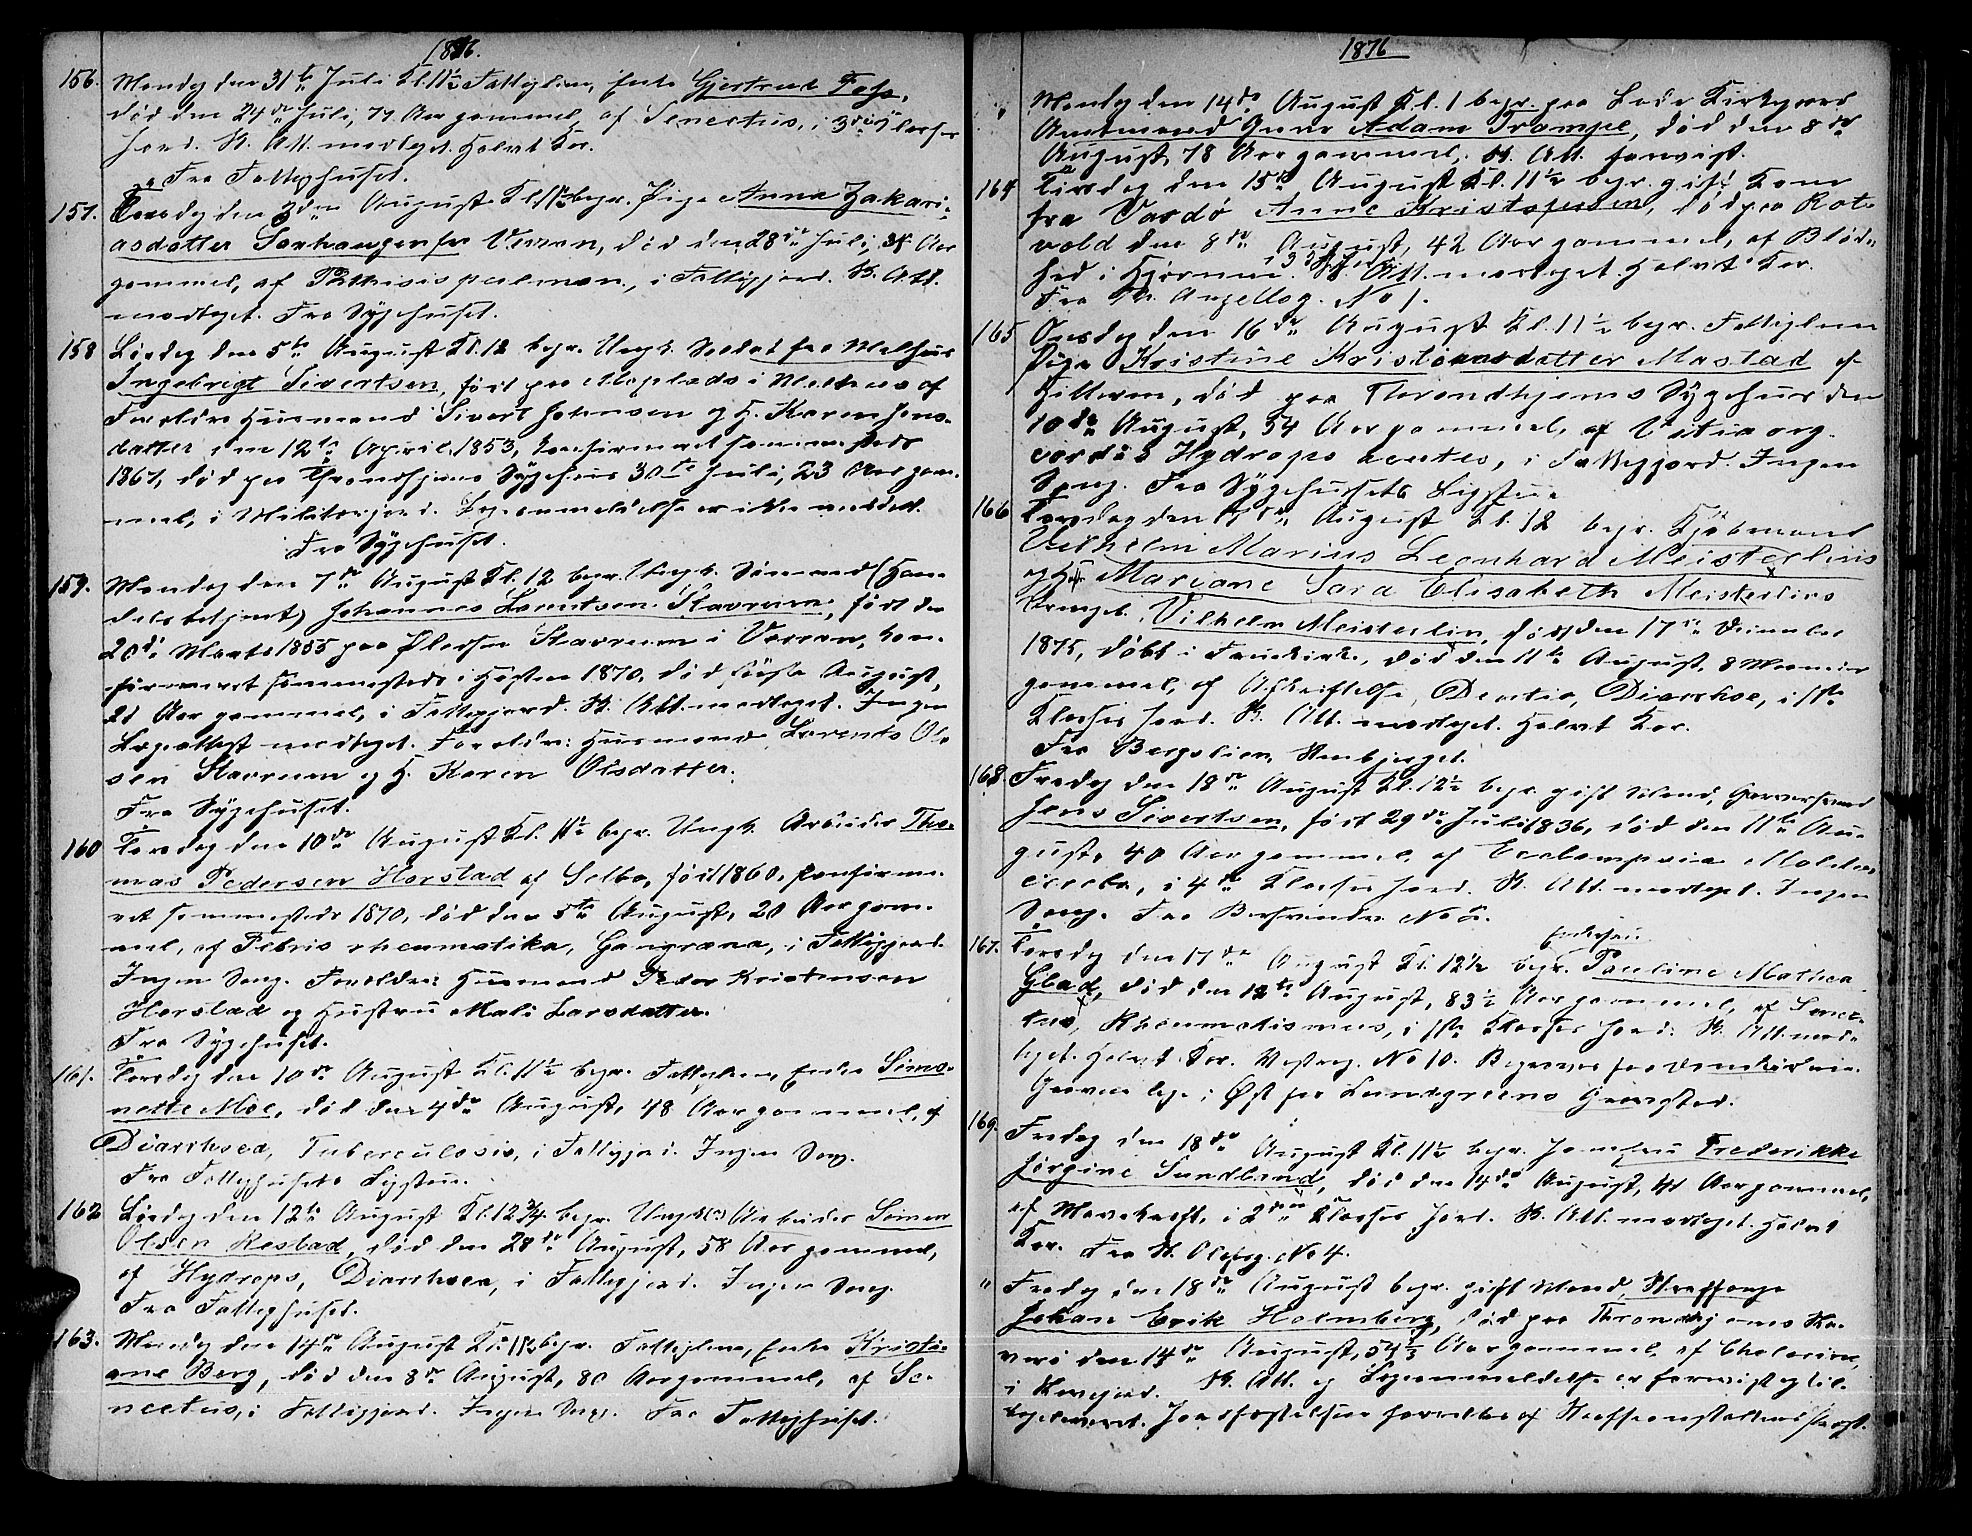 1876.
156. Mandag den 31te Juli Kl. 11½ Fattiglem, Enke Gjertrud Foss,
død den 24de Juli, 77 Aar gammel, af Senectus, i 3die Klasses
Jord. Sk. Att. modtaget. Halvt Kor.
Fra Fattighuset.
157. Torsdag den 3die August Kl. 11½ begr. Pige Anna Zakari-
asdatter fra Værran, død den 28de Juli, Aar
gammel, af Pthisis pulmon, i Fattigjord. Sk. Att.
modtaget. Fra Sygehuset.
158 Lørdag den 5te August Kl. 12 begr. Ungk. Soldat fra Melhus
Ingebrigt Sivertsen, født paa i Melhus af
Forældre Husmand Sivert Johnsen og H. Karen Jons-
datter den 12te April 1853, konfirmeret sammesteds
1867, død paa Throndhjems Sygehus 30te Juli, 23 Aar gam-
mel, i Militærjord. Lægeanmeldelse er ikke meddelt.
Fra Sygehuset.
159. Mandag den 7de August Kl. 12 begr. Ungk. Sømand (Han-
delsbetjent) Johannes Lorentsen Stavrum, født den
20de Marts 1855 paa Pladsen Stavrum i Værran, kon-
firmeret sammesteds i Høsten 1870, død første August,
21 Aar gammel, i Fattigjord. Sk. Att. modtaget. Ingen
Lægeattest modtaget. Forældre: Husmand Lorents Ol-
sen Stavrum og H. Karen Olsdatter.
Fra Sygehuset.
160 Torsdag den 10de August Kl. 11½ begr. Ungk. Arbeider Tho-
mas Pedersen Horstad af Selbo, født 1860, konfirme-
ret sammesteds 1870, død den 5te August, 20 Aar gam-
mel, af Febris rheumatika, Gangræna, i Fattigjord.
Ingen Sang. Forældre: Husmand Peder Kristensen
Horstad og Hustru Mali Larsdatter.
Fra Sygehuset.
161. Torsdag den 10de August Kl. 11½ begr. Fattiglem, Enke Simo-
nette Moe, død den 4de August, 48 Aar gammel, af
Diarrhoea, Tuberculosis, i Fattigjord. Ingen Sang.
Fra Fattighusets Ligstue.
162 Lørdag den 12te August Kl. 12¾ begr. Ungk. (?) Arbeider Simon
Olsen Restad, død den 28de August, 58 Aar gammel,
af Hydrops, Diarrhoea, i Fattigjord. Ingen Sang.
Fra Fattighuset.
163. Mandag den 14de August Kl. 11½ begr. Fattiglem, Enke Kristi-
ane Berg, død den 8de August, 80 Aar gammel, af Se-
nectus, i Fattigjord. Ingen Sang. Fra Fattighuset.
1876
" Mandag den 14de August Kl. 1 begr. paa Lade Kirkegaard
Amtmand Grev Adam Trampe, død den 8de
August, 78 Aar gammel. Sk. Att. forevist.
164 Tirsdag den 15de August Kl. 11½ begr. gift Kone
fra Vardø Anne Kristofersen, død paa Rot-
vold den 8de August, 42 Aar gammel, af Blød-
hed i Hjernen. Sk. Att. modtaget. Halvt Kor.
Fra Th. Angellsg. No 1.
165 Onsdag den 16de August Kl. 11½ begr. Fattiglem
Pige Kristine Kristiansdatter Mastad af
Hitteren, død paa Throndhjems Sygehus den
10de August, 54 Aar gammel, af Vitia org.
cordis Hydrops acutus, i Fattigjord. Ingen
Sang. Fra Sygehusets Ligstue.
166 Torsdag den 17de August Kl. 12 begr. Kjøbmand
Vilhelm Marius Leonhard Meisterlins
og H. Mariane Sara Elisabeth Meisterlins
Drengeb. Vilhelm Meisterlin, født den 17de December
1875, døbt i Fruekirke, død den 11te August, 8 Maaneder
gammel, af Afkræftelse, Dentio, Diarrhoe, i 1ste
Klasses Jord. Sk. Att. modtaget. Halvt Kor.
Fra Bergslien, Stenbjerget.
168. Fredag den 18de August Kl. 12½ begr. gift Mand, Garversvend
Jens Sivertsen, født 29de Juli 1836, død den 11te Au-
gust, 40 Aar gammel, af Ecclampsia
i 4de Klasses Jord. Sk. Att. modtaget. Ingen
Sang. Fra No 2.
167. Torsdag den 17de August Kl. 12½ begr. Enkefru Pauline Mathea
Glad, død den 12te August, 83½ Aar gammel, af Senec-
tus, Rheumatismus, i 1ste Klasses Jord. Sk. Att. mod-
taget. Halvt Kor. No 10. Begraves paa Domkirken.
Graven lige i Øst for Lundgreens Gravsted.
169. Fredag den 18de August Kl. 11½ begr. Jomfru Frederikke
Jørgine Sundland, død den 14de August, 41 Aar gammel,
af Mavekræft, i 2den Klasses Jord. Sk. Att. modtaget. Halvt
Kor. Fra St. Olafsg. No 4.
" Fredag den 18de August begr. gift Mand, Straffange
Johan Erik Holmberg, død paa Throndhjems Sla-
veri den 14de August, 54⅓ Aar gammel, af Cholerine,
i Slavejord. Sk. Att. og Lægeanmeldelse er forevist og til-
bageleveret. Jordfæstelsen forrettes af Straffeanstaltens Præst.